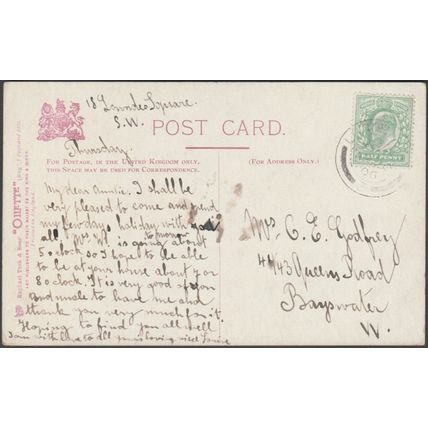 18 Lowndes Square.
S.W.
Thursday.
POST CARD.
FOR POSTAGE, IN THE UNITED KINGDOM ONLY,
THIS SPACE MAY BE USED FOR CORRESPONDENCE.
(FOR ADDRESS ONLY.)
HALF PENNY
Raphael Tuck & Sons' "OILETTE"
My dear Auntie, I shall be
very pleased to come and spend
my few days holiday with you
all Mrs is going to-morrow about
5 o'clock so I hope to be able
to be at your house about 7 or
8 o'clock. It is very good of you
and uncle to have me and
thank you very much for it.
Hoping to find you all well
I am with love to all your loving niece
Mrs C. E. Godfrey
43 Queens Road
Bayswater
W.